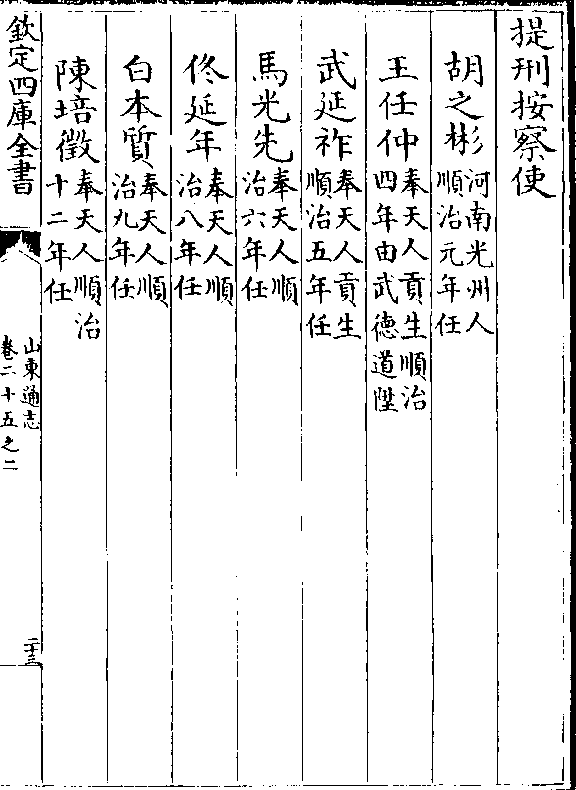 提刑按察使
胡之彬河南光州人順治元年任
王任仲奉天人貢生順治四年由武德道陞
武延祚奉天人貢生順治五年任
馬光先奉天人順治六年任
佟延年奉天人順治八年任
白本質奉天人順治九年任
陳培徵奉天人順治十二年任
欽定四庫全書
山東通志
卷二十五之二
二十三